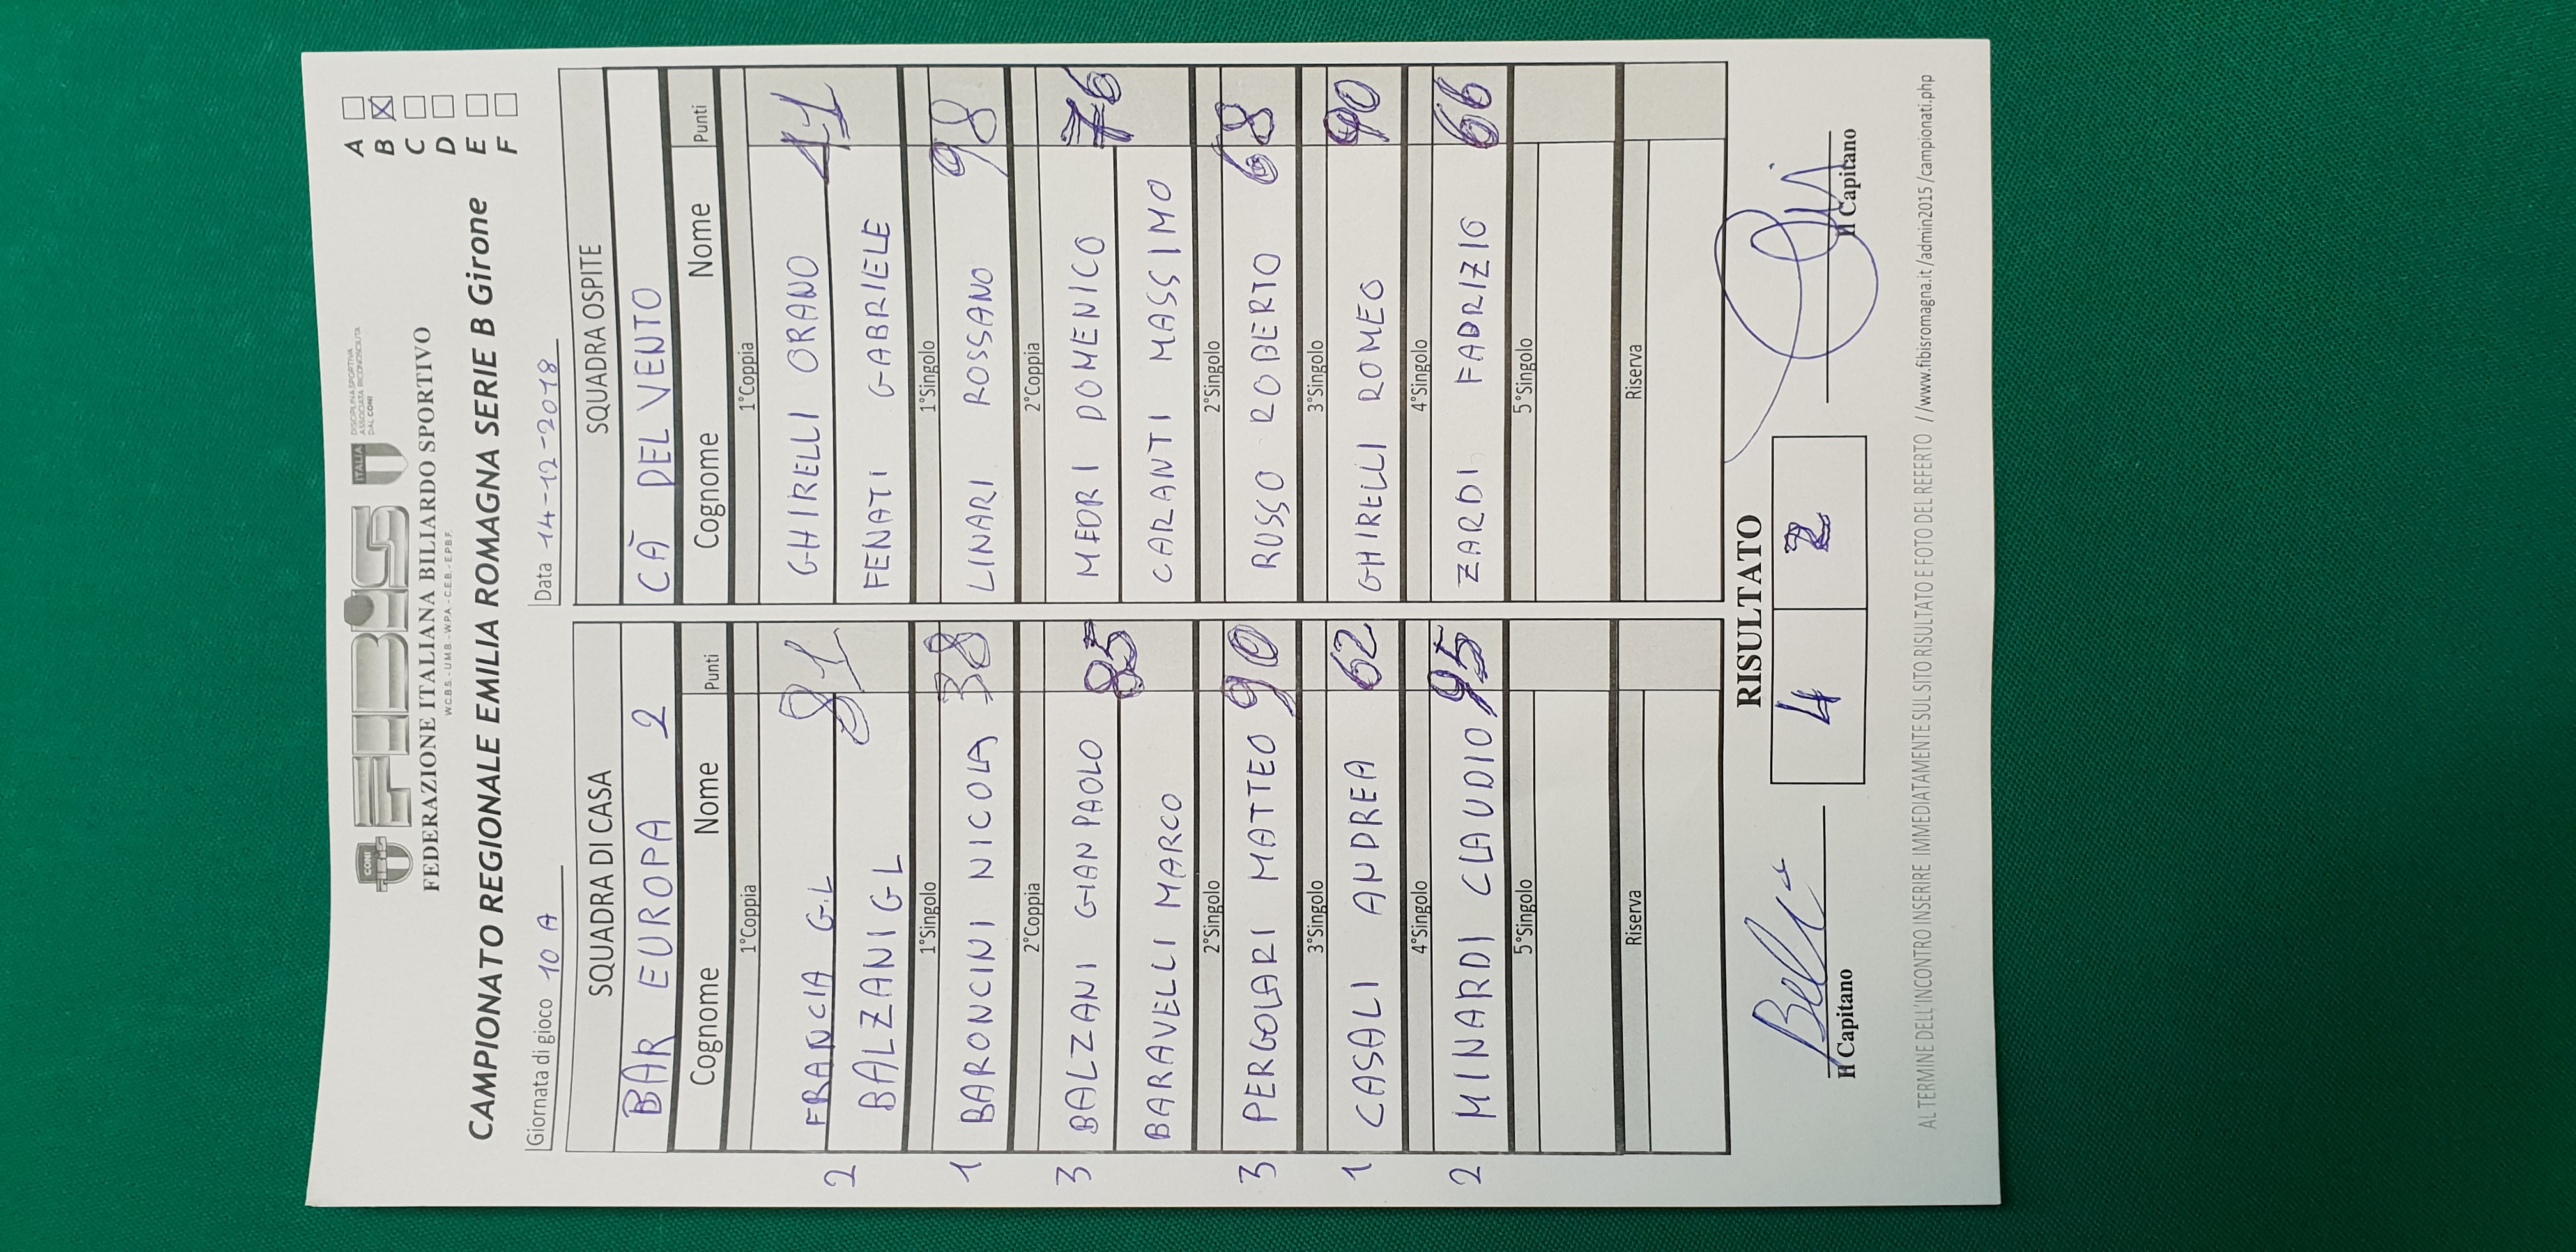 FEDERAZIONE ITALIANA BILIARDO SPORTIVO
W.C.B.S. - U.M.B. - W.P.A. - C.E.B. - E.P.B.F.
CONI
FIBiS
ITALIA
DISCIPLINA SPORTIVA
ASSOCIATA RICONOSCIUTA
DAL CONI
CAMPIONATO REGIONALE EMILIA ROMAGNA SERIE B Girone
A
B
C
D
E
F
Giornata di gioco 10 A
Data 14-12-2018
SQUADRA DI CASA
BAR EUROPA 2
Cognome Nome Punti
1°Coppia
2 FRANCIA G.L 81
BALZANI GL
1°Singolo
1 BARONCINI NICOLA 38
2°Coppia
3 BALZANI GIANPAOLO 85
BARAVELLI MARCO
2°Singolo
3 PERGOLARI MATTEO 90
3°Singolo
1 CASALI ANDREA 62
4°Singolo
2 MINARDI CLAUDIO 95
5°Singolo
Riserva
SQUADRA OSPITE
CÀ DEL VENTO
Cognome Nome Punti
1°Coppia
GHIRELLI ORANO 41
FENATI GABRIELE
1°Singolo
LINARI ROSSANO 98
2°Coppia
MEDRI DOMENICO 76
CARANTI MASSIMO
2°Singolo
RUSSO ROBERTO 68
3°Singolo
GHIRELLI ROMEO 90
4°Singolo
ZARDI FABRIZIO 66
5°Singolo
Riserva
RISULTATO
4 2
Il Capitano
Il Capitano
AL TERMINE DELL'INCONTRO INSERIRE IMMEDIATAMENTE SUL SITO RISULTATO E FOTO DEL REFERTO //www.fibisromagna.it/admin2015/campionati.php